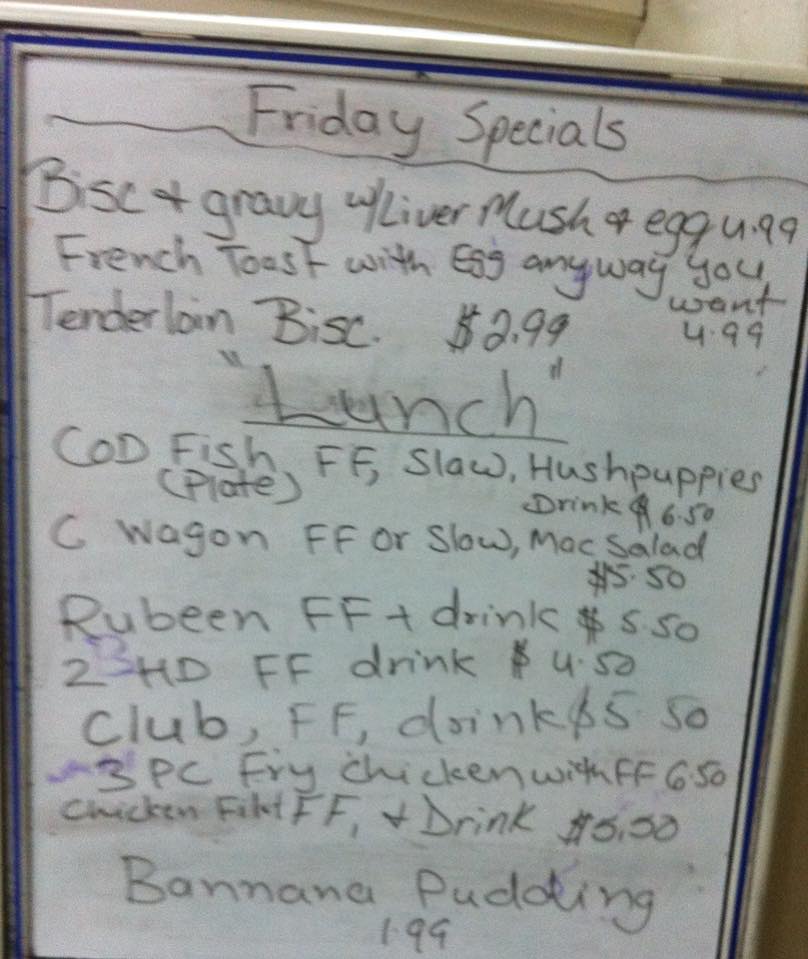 Friday Specials
Bisc + gravy w/Liver Mush & egg 4.99
French Toast with Egg anyway you
want
Tenderloin Bisc. $2.99 4.99
"Lunch"
COD Fish, FF, Slaw, Hushpuppies
(Plate) Drink $6.50
C Wagon FF or Slow, Mac Salad
$5.50
Rubeen FF + drink $5.50
2 HD FF drink $4.50
Club, FF, drink $5.50
3 PC Fry chicken with FF 6.50
Chicken Filet FF, + Drink $5.50
Bannana Pudding
1.99